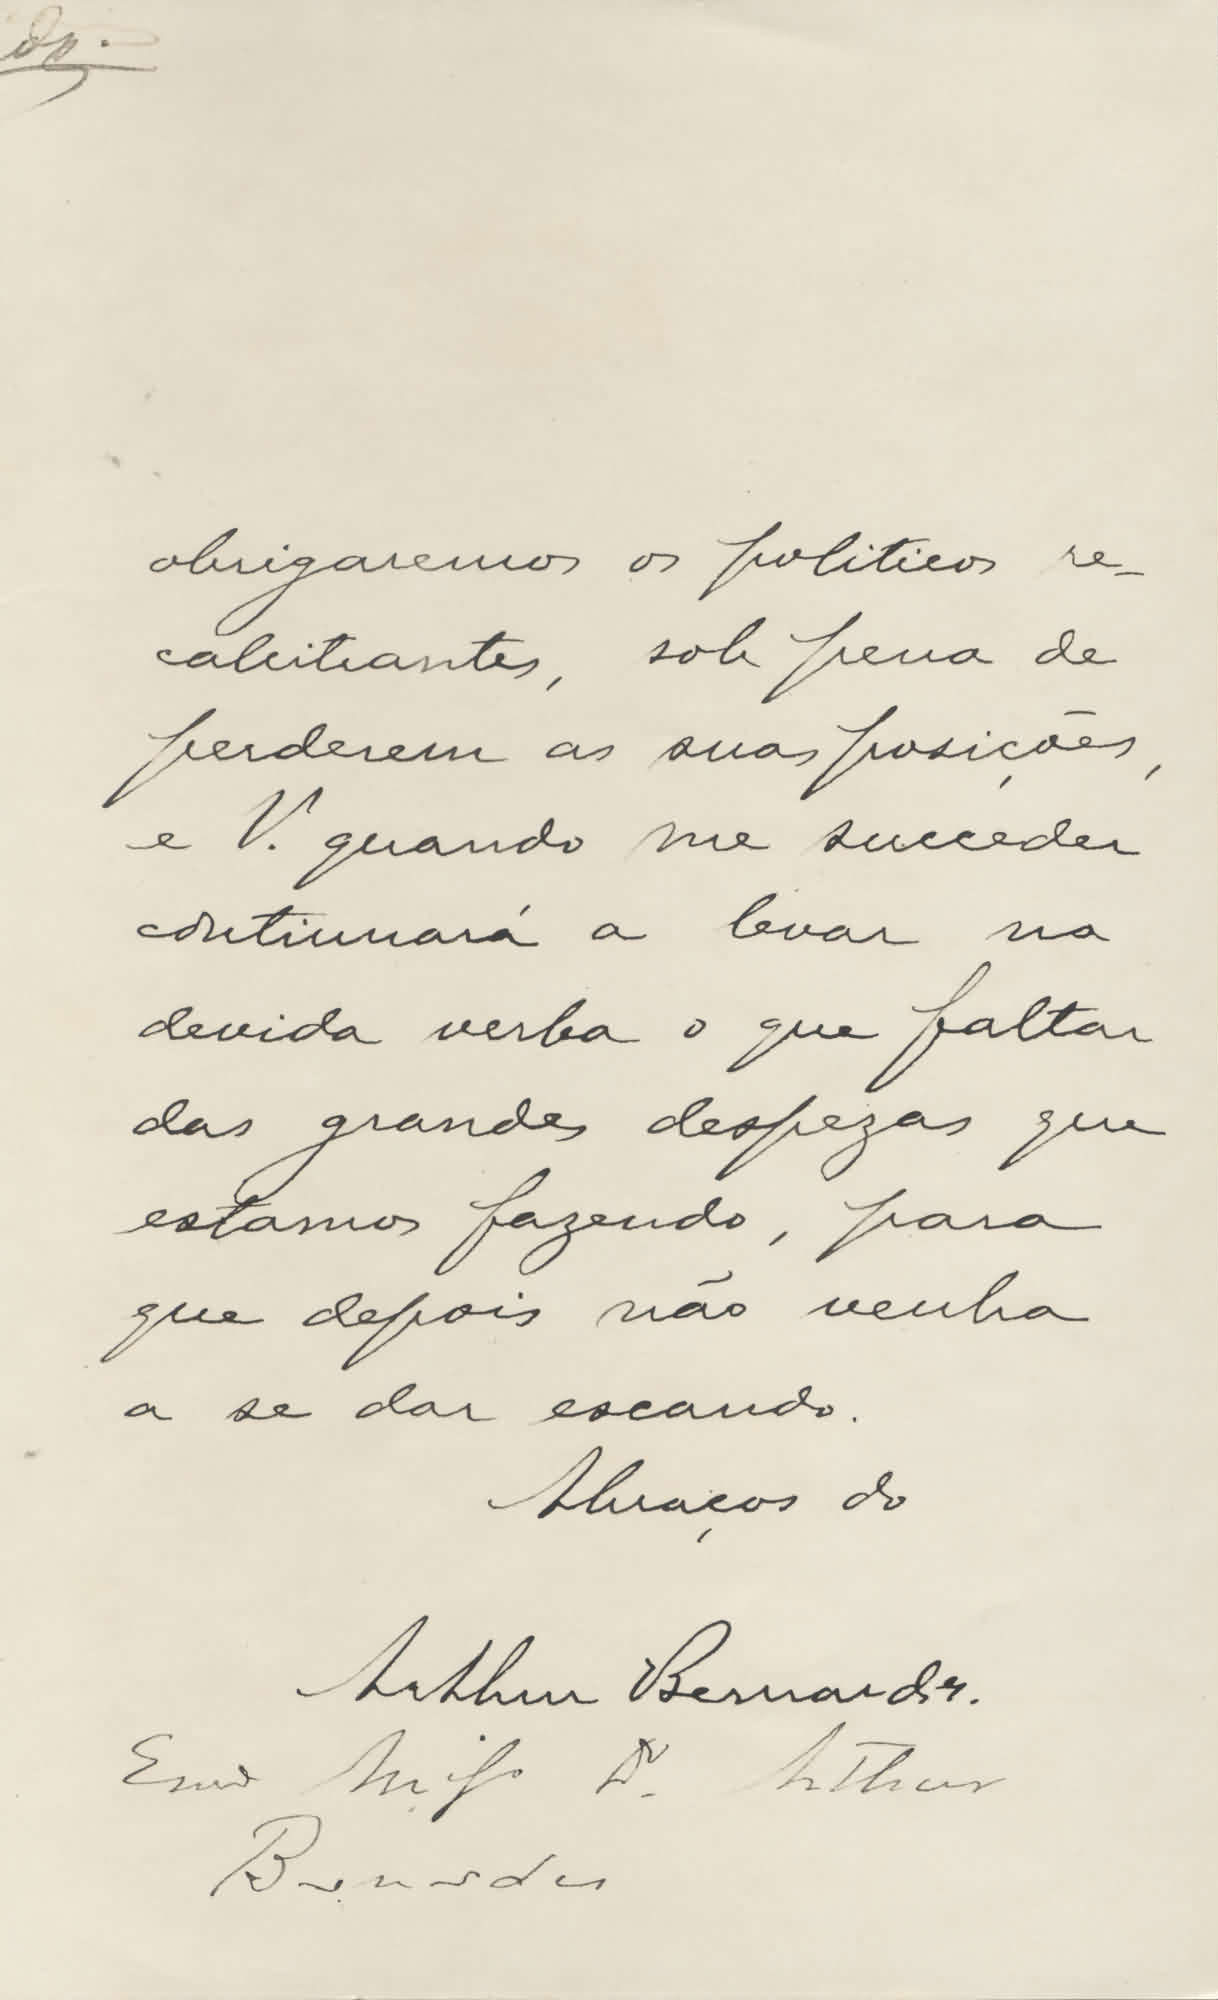 obrigaremos os politicos re-
calcitrantes, sob pena de
perderem as suas posições,
e V. quando me succeder
continuará a levar na
devida verba o que faltar
das grandes despezas que
estamos fazendo, para
que depois não venha
a se dar escando.
Abraços do
Arthur Bernardes.
Dr. Arthur
Bernardes